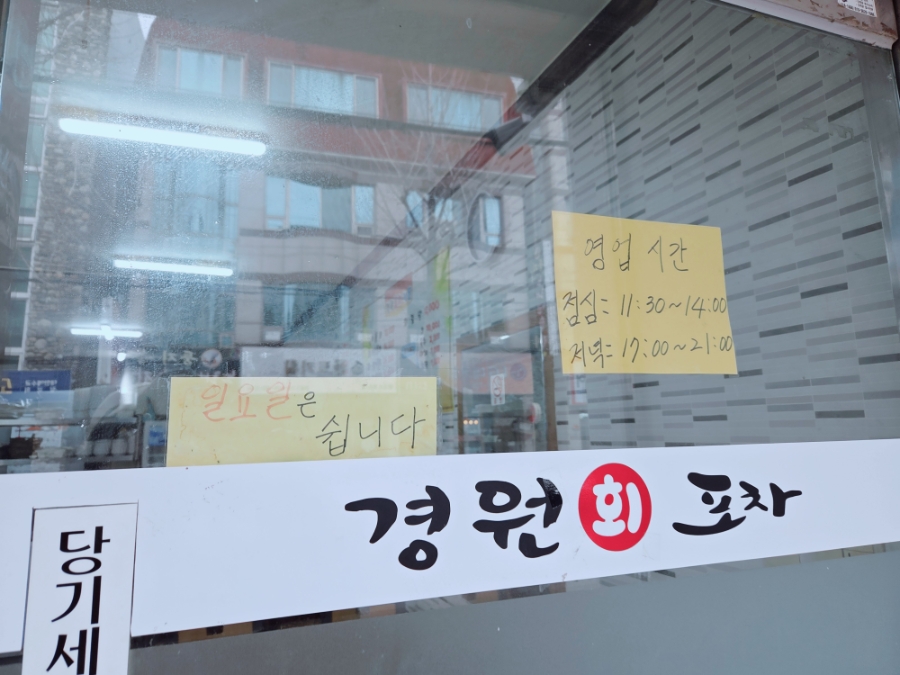 영업 시간
점심= 11:30~14:00
저녁= 17:00~21:00
일요일은
쉽니다
경원 회 포차
당기세